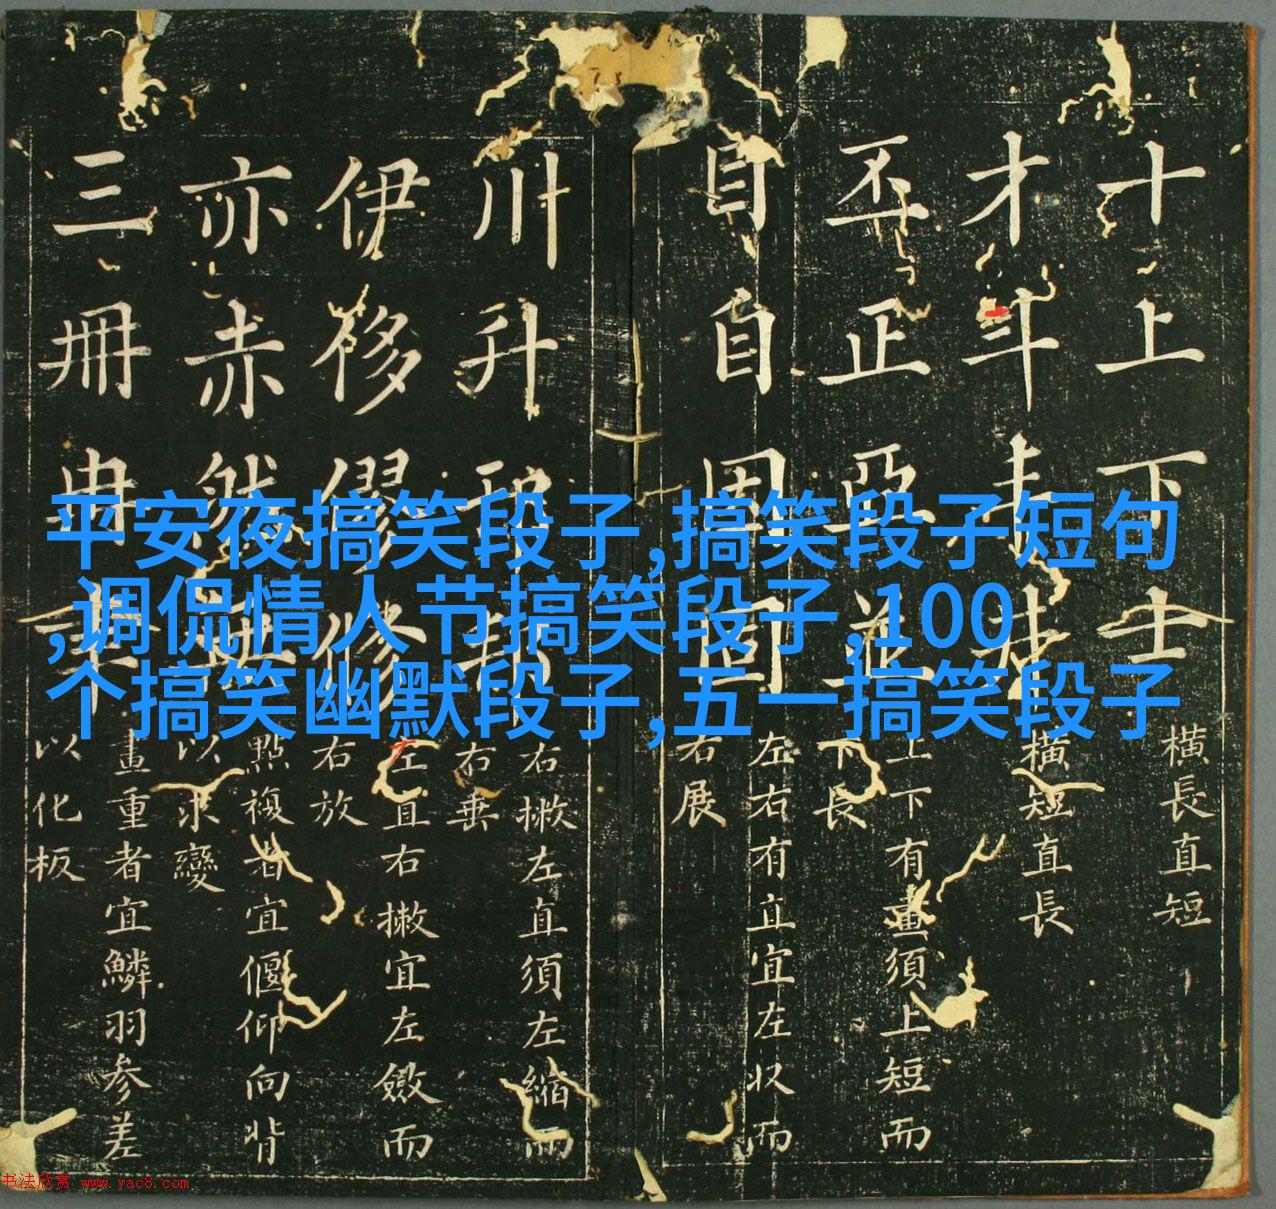 平安夜搞笑段子,搞笑段子短句
,调侃情人节搞笑段子,100
个搞笑幽默段子,五一搞笑段子
十上下士
橫長直短
才斗
橫短直長
丕正亞並
上下有畫須上短而
下長
目自因固
左右有直宜左収而
右展
川升
右撇左直須左縮而
右垂
伊侈僇修
左直右撇宜左斂而
右放
亦赤然無
點複者宜偃仰向背
以求變
三冊
畫重者宜鱗羽参差
以化板
书法欣赏 www.yac8.com